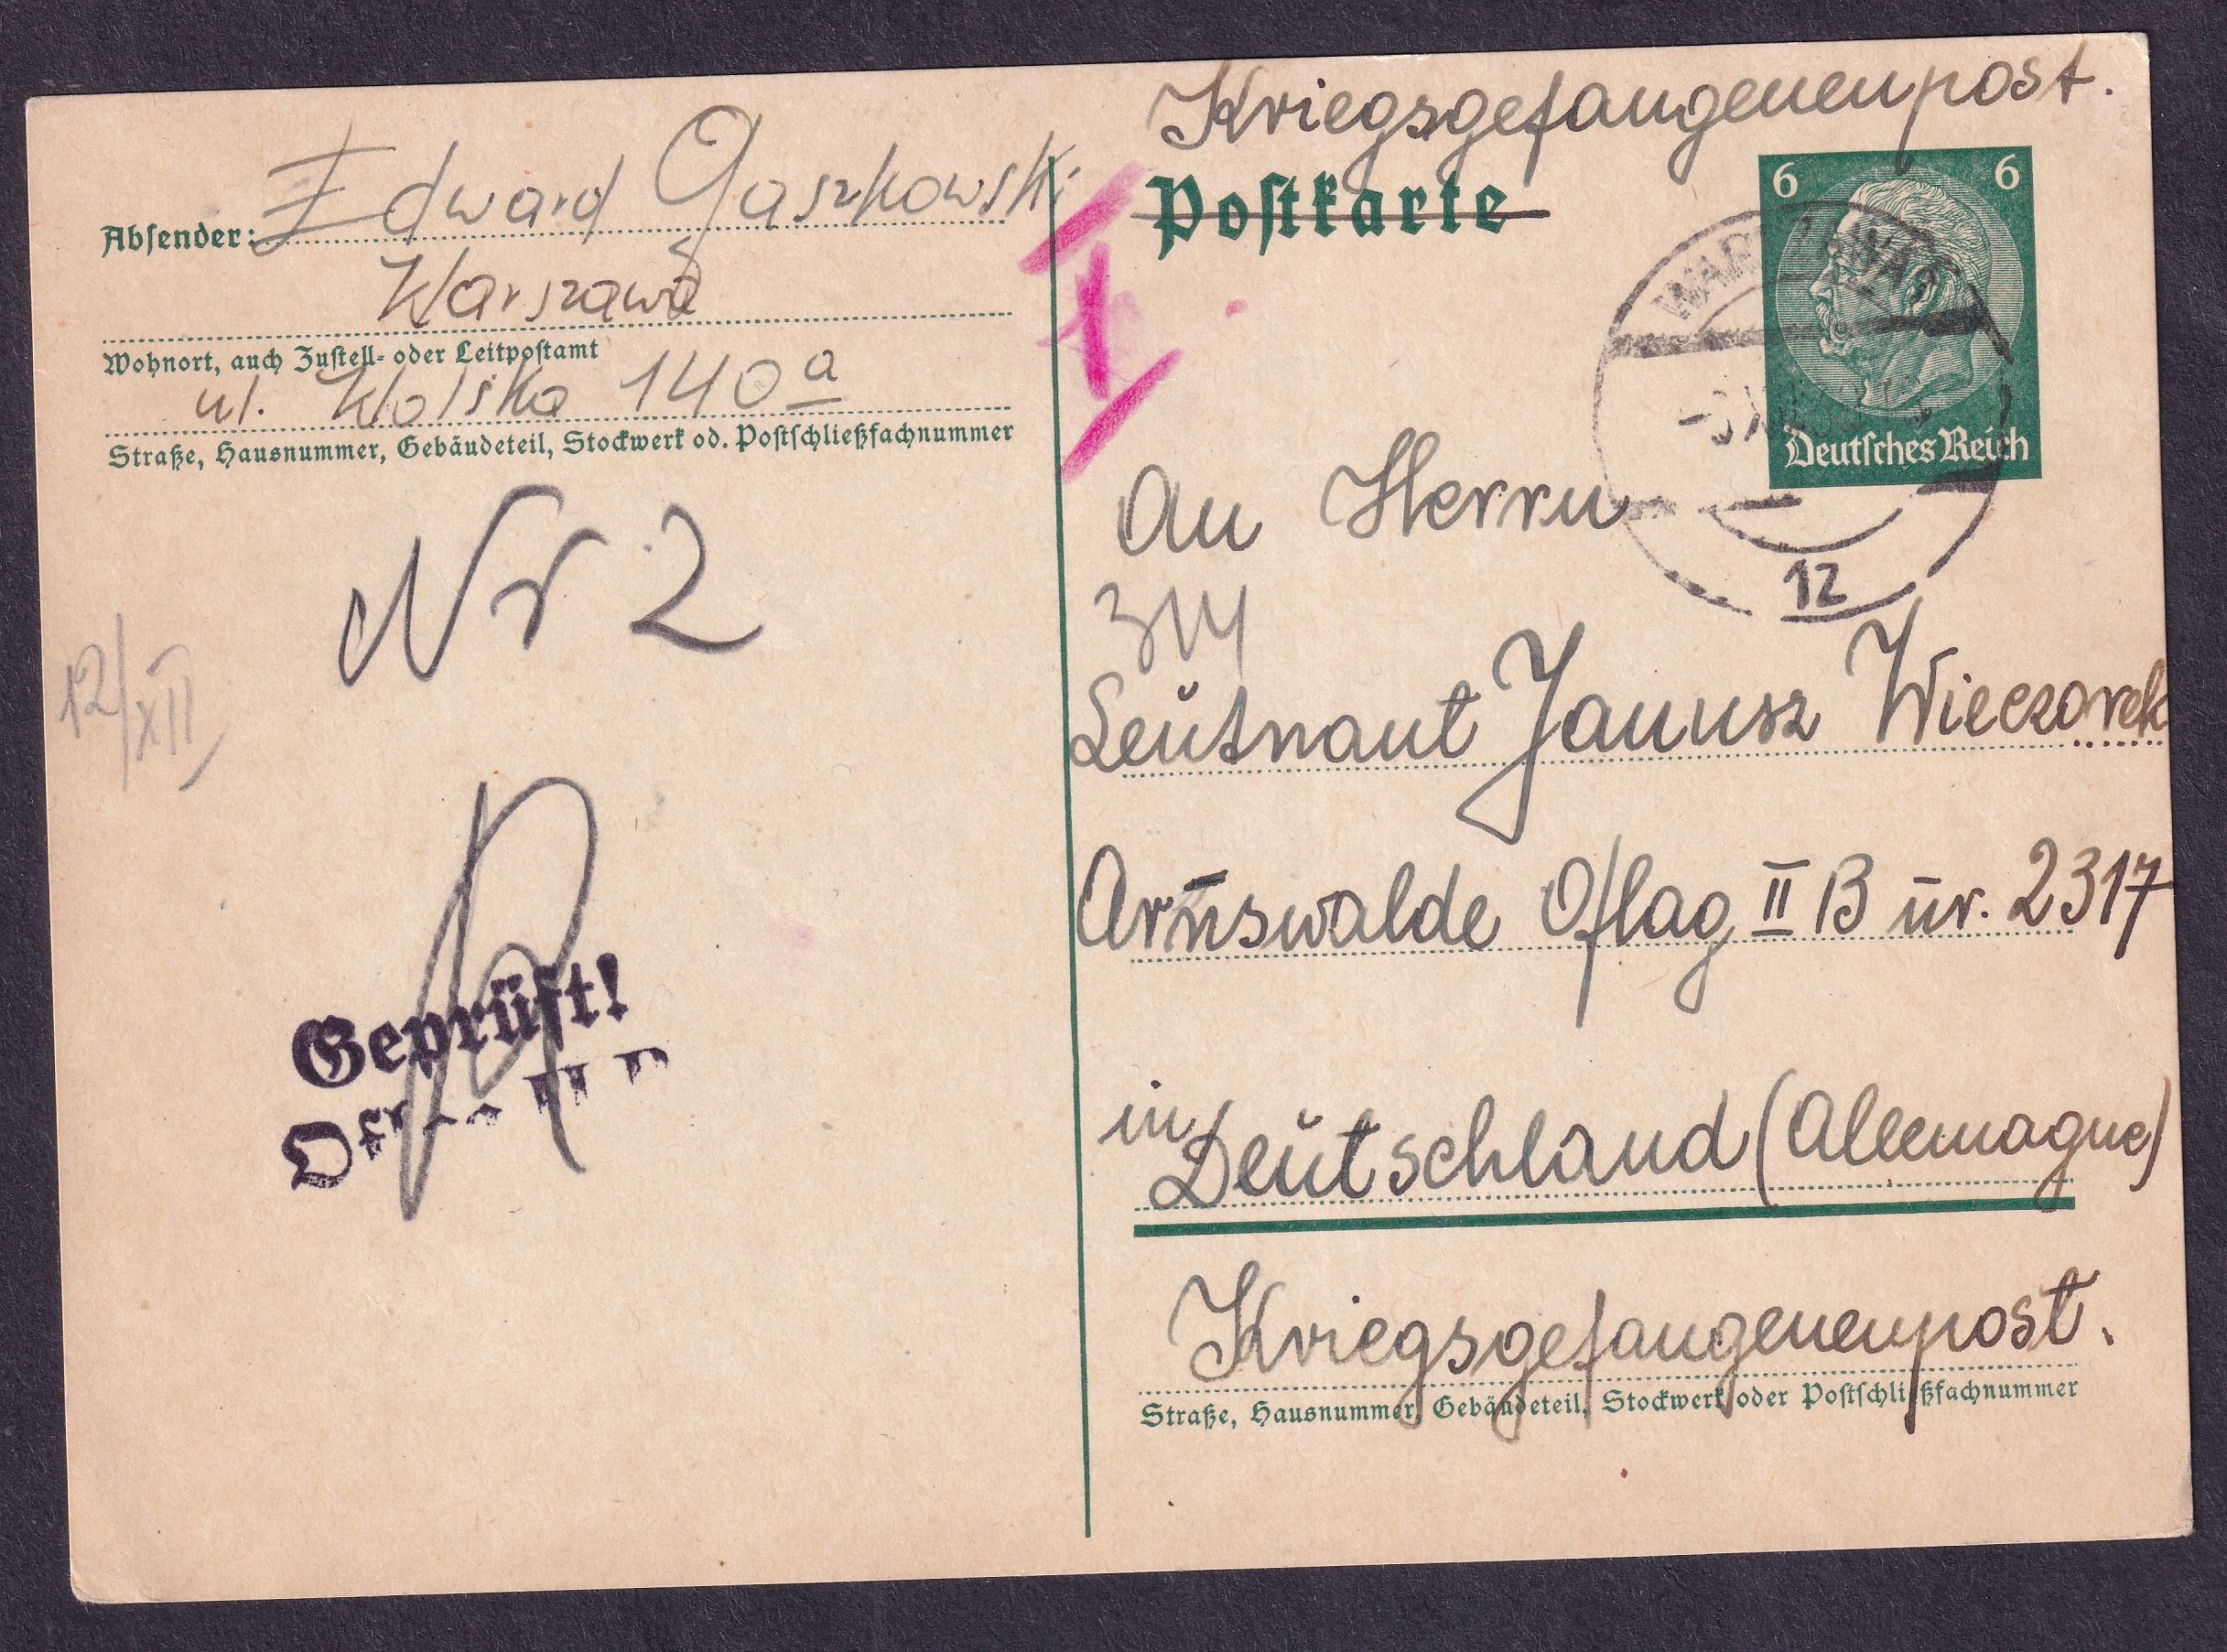 Absender: Edward Gaszkowski
Warszawa
Wohnort, auch Zustell- oder Leitpostamt
ul. Wolska 140a
Straße, Hausnummer, Gebäudeteil, Stockwerk od. Postschließfachnummer
Nr 2
12/XII
Geprüft!
Kriegsgefangenenpost.
Postkarte
6 6
Deutsches Reich
12
An Herrn
Leutnant Janusz Wieczorek
Arnswalde Oflag II B nr. 2317
in Deutschland (Allemagne)
Kriegsgefangenenpost.
Straße, Hausnummer, Gebäudeteil, Stockwerk oder Postschließfachnummer